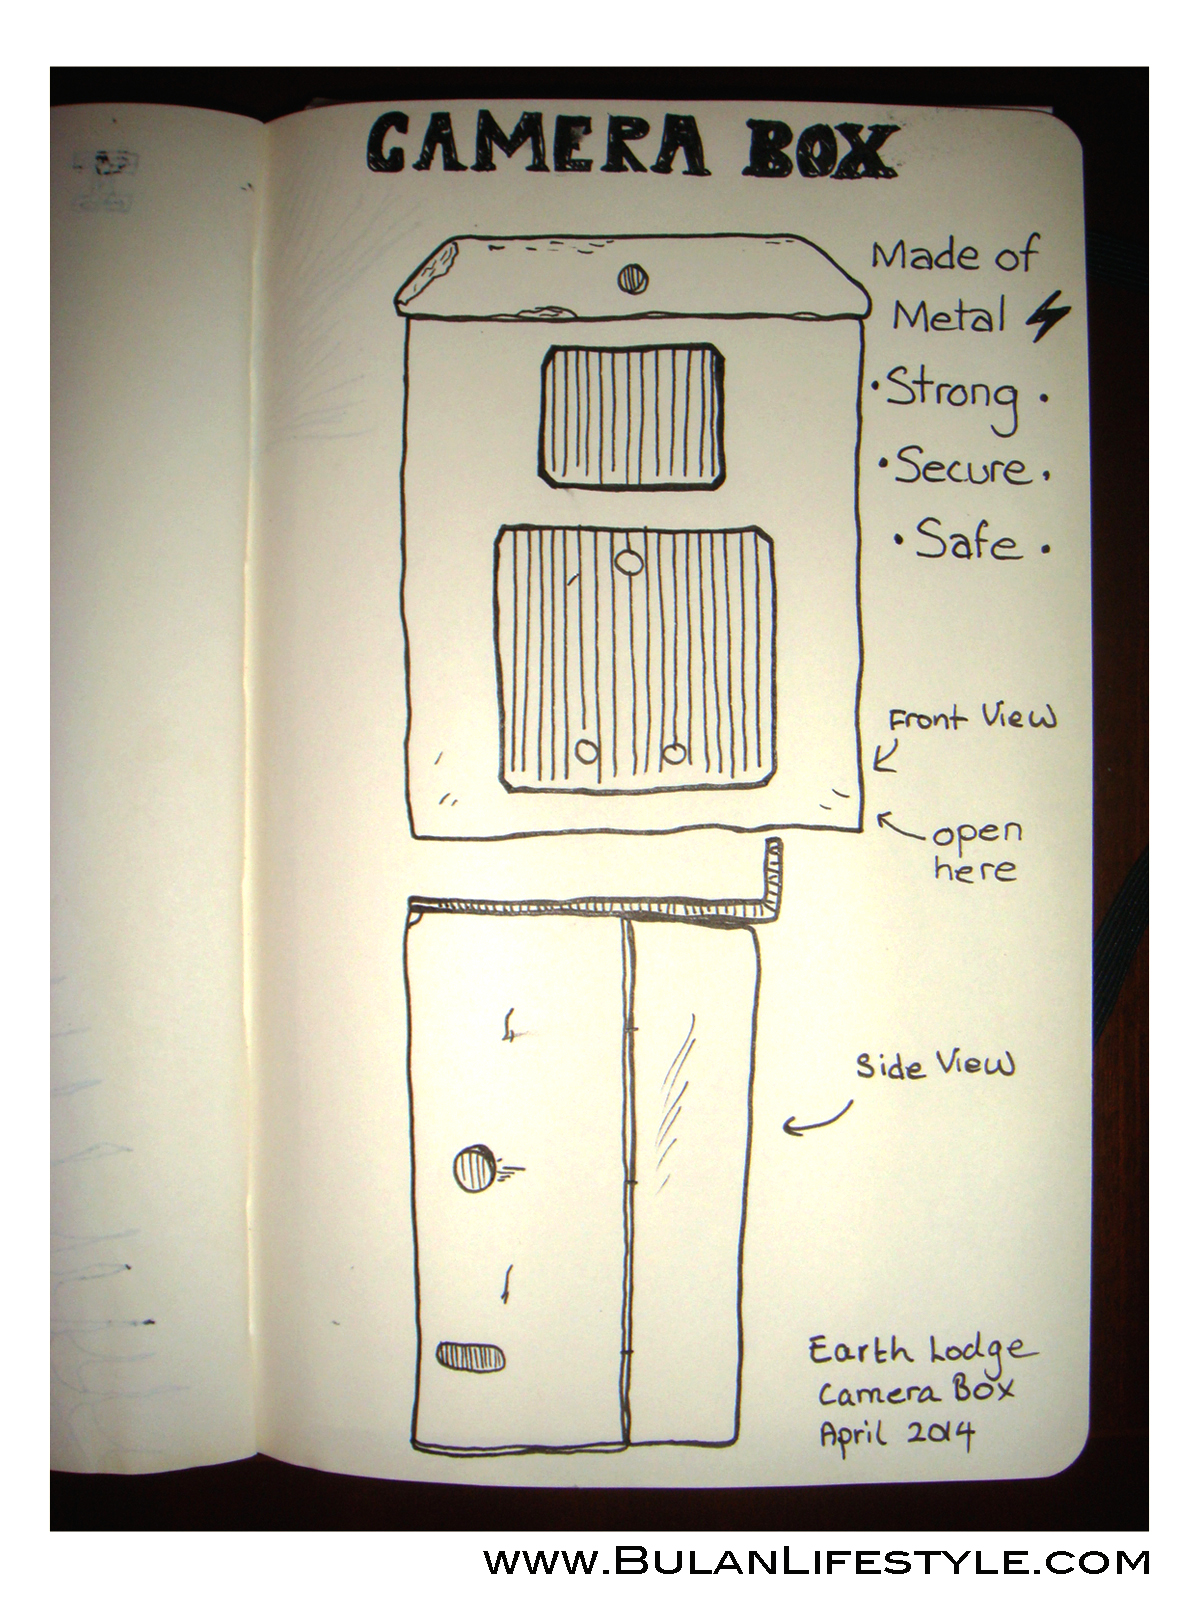 CAMERA BOX
Made of
Metal
• Strong •
• Secure •
• Safe •
Front View
open
here
Side View
Earth Lodge
Camera Box
April 2014
www.BulanLifestyle.com